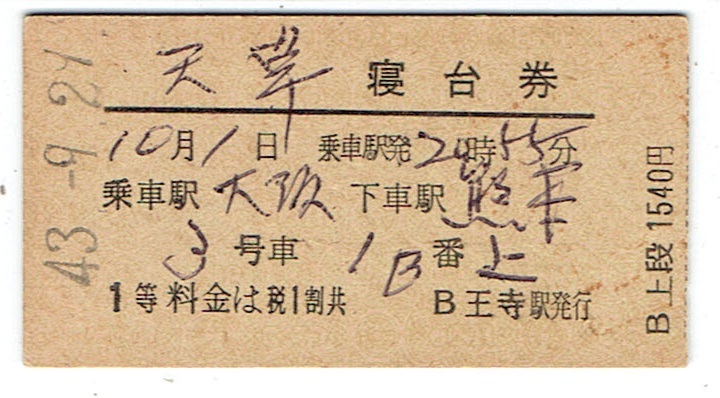 43.-9.21
天草 寝台券
10月1日 乗車駅発20時55分
乗車駅 大阪 下車駅 熊本
3号車 1B番上
1等料金は税1割共 B王寺駅発行
B上段1540円